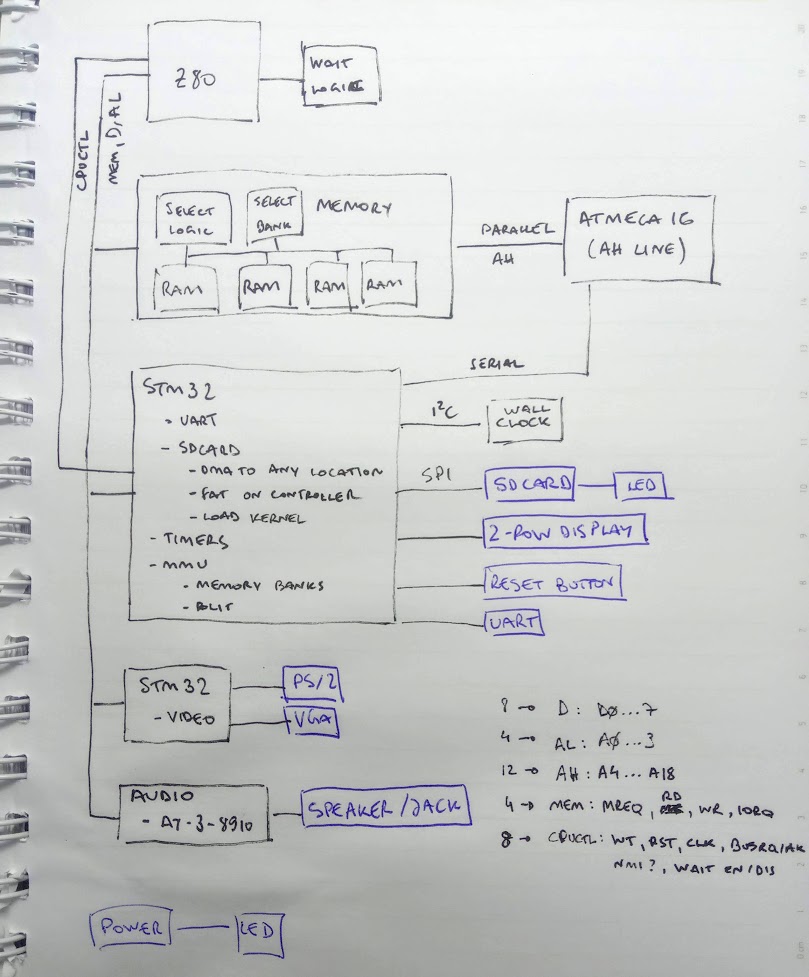 Z80
WAIT
LOGIC
CPUCTL
MEM, D, AL
SELECT
LOGIC
SELECT
BANK
MEMORY
RAM
RAM
RAM
RAM
PARALLEL
AH
ATMEGA 16
(AH LINE)
SERIAL
STM32
- UART
- SDCARD
- DMA TO ANY LOCATION
- FAT ON CONTROLLER
- LOAD KERNEL
- TIMERS
- MMU
- MEMORY BANKS
- BLIT
I²C
WALL
CLOCK
SPI
SDCARD
LED
2-ROW DISPLAY
RESET BUTTON
UART
STM32
- VIDEO
PS/2
VGA
AUDIO
- AY-3-8910
SPEAKER/JACK
8 → D: D0...7
4 → AL: A0...3
12 → AH: A4...A18
4 → MEM: MREQ, RD, WR, IORQ
8 → CPUCTL: WT, RST, CLK, BUSRQ/AK
NMI?, WAIT EN/DIS
POWER
LED